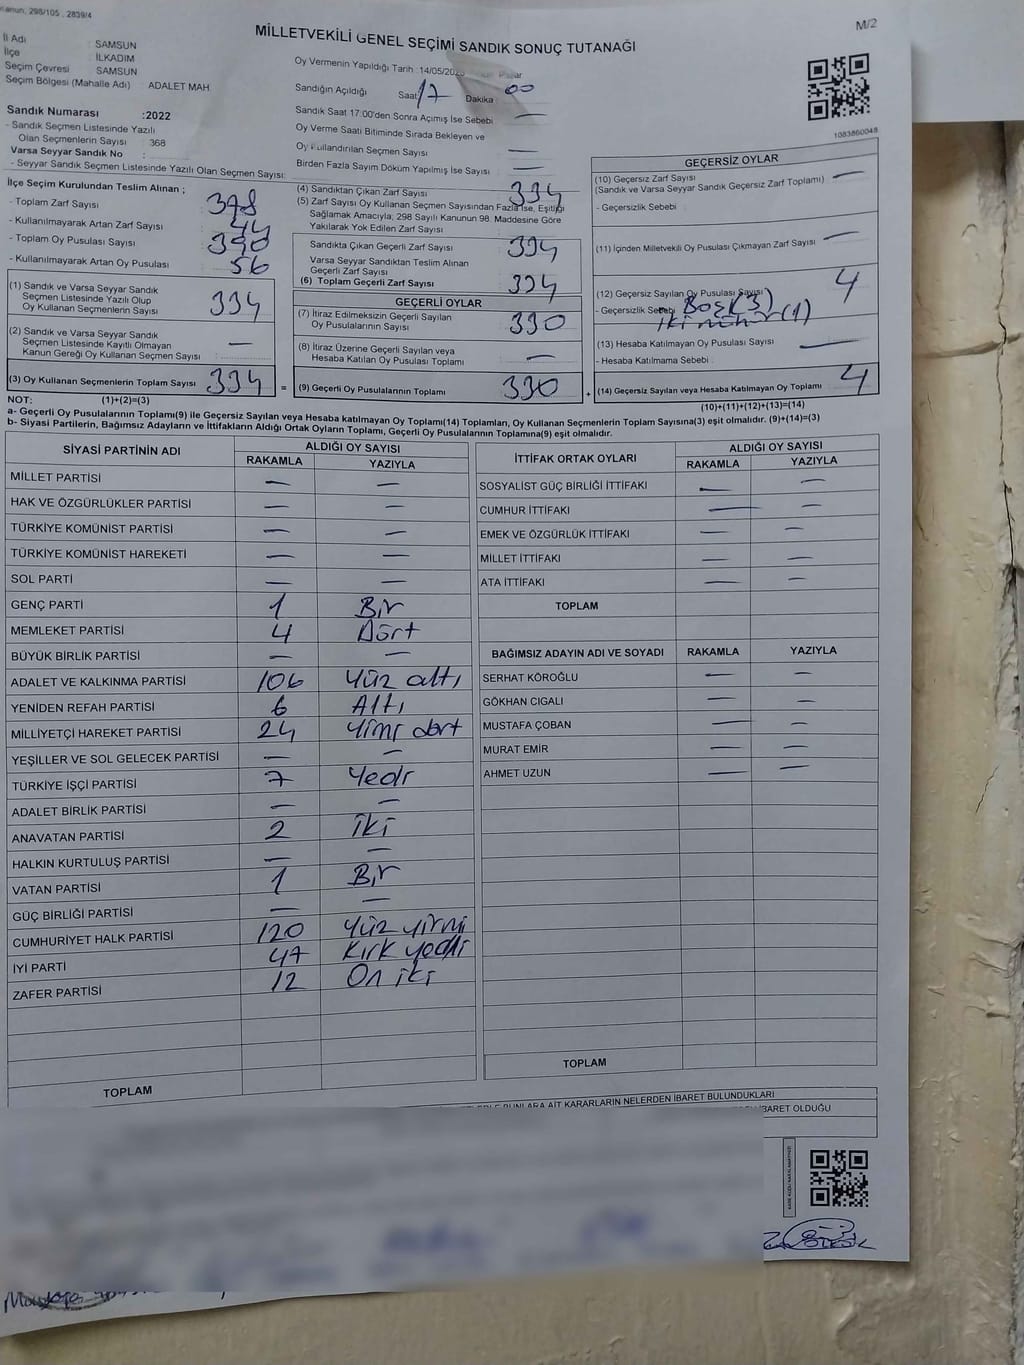 Kanun, 298/105 , 2839/4
M/2
MİLLETVEKİLİ GENEL SEÇİMİ SANDIK SONUÇ TUTANAĞI
İl Adı : SAMSUN
İlçe : İLKADIM
Seçim Çevresi : SAMSUN
Seçim Bölgesi (Mahalle Adı) ADALET MAH
Sandık Numarası :2022
- Sandık Seçmen Listesinde Yazılı
Olan Seçmenlerin Sayısı : 368
Varsa Seyyar Sandık No :
- Seyyar Sandık Seçmen Listesinde Yazılı Olan Seçmen Sayısı:
Oy Vermenin Yapıldığı Tarih :14/05/2023 Pazar
Sandığın Açıldığı Saat 17 Dakika 00
Sandık Saat 17:00'den Sonra Açımış İse Sebebi —
Oy Verme Saati Bitiminde Sırada Bekleyen ve
Oy Kullandırılan Seçmen Sayısı —
Birden Fazla Sayım Döküm Yapılmış İse Sayısı —
1083860048
İlçe Seçim Kurulundan Teslim Alınan ;
- Toplam Zarf Sayısı : 378
- Kullanılmayarak Artan Zarf Sayısı : 44
- Toplam Oy Pusulası Sayısı : 390
- Kullanılmayarak Artan Oy Pusulası : 56
(1) Sandık ve Varsa Seyyar Sandık
Seçmen Listesinde Yazılı Olup
Oy Kullanan Seçmenlerin Sayısı : 334
(2) Sandık ve Varsa Seyyar Sandık
Seçmen Listesinde Kayıtlı Olmayan
Kanun Gereği Oy Kullanan Seçmen Sayısı : —
(3) Oy Kullanan Seçmenlerin Toplam Sayısı 334
(4) Sandıktan Çıkan Zarf Sayısı 334
(5) Zarf Sayısı Oy Kullanan Seçmen Sayısından Fazla İse, Eşitliği
Sağlamak Amacıyla; 298 Sayılı Kanunun 98. Maddesine Göre
Yakılarak Yok Edilen Zarf Sayısı :
Sandıkta Çıkan Geçerli Zarf Sayısı 334
Varsa Seyyar Sandıktan Teslim Alınan
Geçerli Zarf Sayısı
(6) Toplam Geçerli Zarf Sayısı : 334
GEÇERLİ OYLAR
(7) İtiraz Edilmeksizin Geçerli Sayılan
Oy Pusulalarının Sayısı : 330
(8) İtiraz Üzerine Geçerli Sayılan veya
Hesaba Katılan Oy Pusulaları Toplamı —
= (9) Geçerli Oy Pusulalarının Toplamı 330
GEÇERSİZ OYLAR
(10) Geçersiz Zarf Sayısı —
(Sandık ve Varsa Seyyar Sandık Geçersiz Zarf Toplamı)
- Geçersizlik Sebebi :
(11) İçinden Milletvekili Oy Pusulası Çıkmayan Zarf Sayısı —
(12) Geçersiz Sayılan Oy Pusulası Sayısı 4
- Geçersizlik Sebebi Boş (3)
iki mühür (1)
(13) Hesaba Katılmayan Oy Pusulası Sayısı —
- Hesaba Katılmama Sebebi :
+ (14) Geçersiz Sayılan veya Hesaba Katılmayan Oy Toplamı 4
NOT: (1)+(2)=(3)
(10)+(11)+(12)+(13)=(14)
a- Geçerli Oy Pusulalarının Toplamı(9) ile Geçersiz Sayılan veya Hesaba katılmayan Oy Toplamı(14) Toplamları, Oy Kullanan Seçmenlerin Toplam Sayısına(3) eşit olmalıdır. (9)+(14)=(3)
b- Siyasi Partilerin, Bağımsız Adayların ve İttifakların Aldığı Ortak Oyların Toplamı, Geçerli Oy Pusulalarının Toplamına(9) eşit olmalıdır.
SİYASİ PARTİNİN ADI ALDIĞI OY SAYISI
RAKAMLA YAZIYLA
MİLLET PARTİSİ — —
HAK VE ÖZGÜRLÜKLER PARTİSİ — —
TÜRKİYE KOMÜNİST PARTİSİ — —
TÜRKİYE KOMÜNİST HAREKETİ — —
SOL PARTİ — —
GENÇ PARTİ 1 Bir
MEMLEKET PARTİSİ 4 Dört
BÜYÜK BİRLİK PARTİSİ — —
ADALET VE KALKINMA PARTİSİ 106 Yüz altı
YENİDEN REFAH PARTİSİ 6 Altı
MİLLİYETÇİ HAREKET PARTİSİ 24 Yirmi dört
YEŞİLLER VE SOL GELECEK PARTİSİ — —
TÜRKİYE İŞÇİ PARTİSİ 7 Yedi
ADALET BİRLİK PARTİSİ — —
ANAVATAN PARTİSİ 2 İki
HALKIN KURTULUŞ PARTİSİ — —
VATAN PARTİSİ 1 Bir
GÜÇ BİRLİĞİ PARTİSİ — —
CUMHURİYET HALK PARTİSİ 120 Yüz yirmi
İYİ PARTİ 47 Kırk yedi
ZAFER PARTİSİ 12 On iki
TOPLAM
İTTİFAK ORTAK OYLARI ALDIĞI OY SAYISI
RAKAMLA YAZIYLA
SOSYALİST GÜÇ BİRLİĞİ İTTİFAKI — —
CUMHUR İTTİFAKI — —
EMEK VE ÖZGÜRLÜK İTTİFAKI — —
MİLLET İTTİFAKI — —
ATA İTTİFAKI — —
TOPLAM
BAĞIMSIZ ADAYIN ADI VE SOYADI RAKAMLA YAZIYLA
SERHAT KÖROĞLU — —
GÖKHAN CIGALI — —
MUSTAFA ÇOBAN — —
MURAT EMİR — —
AHMET UZUN — —
TOPLAM
BUNLARA AİT KARARLARIN NELERDEN İBARET BULUNDUKLARI
İBARET OLDUĞU